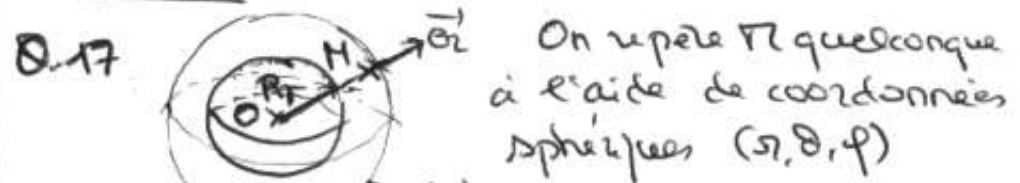 Q.17
O R_T M \vec{e_r}
On repère M quelconque
à l'aide de coordonnées
sphériques (r, θ, φ)